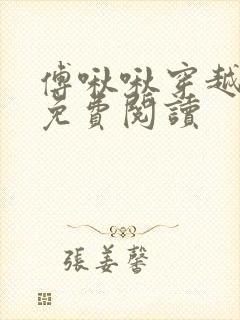 傅啾啾穿越
免費閱讀
張姜馨